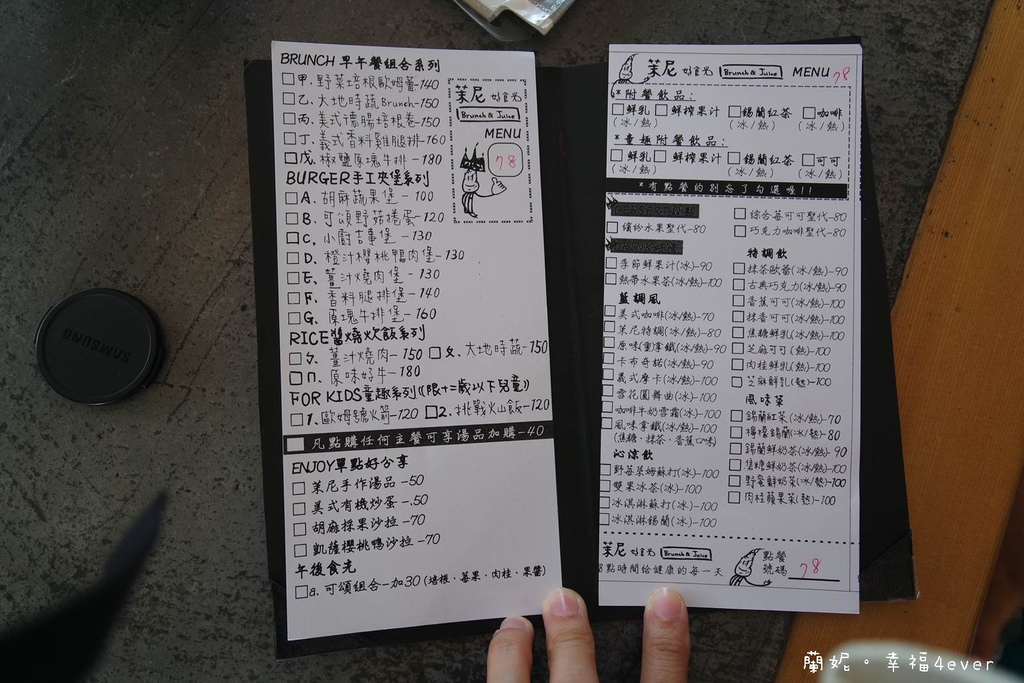 BRUNCH 早午餐組合系列
甲.野菜培根歐姆蕾-140
乙.大地時蔬Brunch-150
丙.美式德腸培根卷-150
丁.義式香料雞腿排-160
戊.椒鹽原塊牛排-180
BURGER手工夾堡系列
A.胡麻蔬果堡-100
B.可頌野菇捲蛋-120
C.小廚吉事堡-130
D.橙汁櫻桃鴨肉堡-130
E.薑汁燒肉堡-130
F.香料腿排堡-140
G.原塊牛排堡-160
RICE醬燒炊飯系列
ㄅ.薑汁燒肉-150 ㄆ.大地時蔬-150
ㄇ.原味好牛-180
FOR KIDS童趣系列((限十二歲以下兒童))
1.歐姆號火箭-120 2.挑戰火山飯-120
凡點購任何主餐可享湯品加購-40
ENJOY單點好分享
茉尼手作湯品-50
美式有機炒蛋-50
胡麻採果沙拉-70
凱薩櫻桃鴨沙拉-70
午後食光
a.可頌組合-加30(培根.莓果.肉桂.果醬)
茉尼 好食光
Brunch & Juice
MENU
78
茉尼 好食光 Brunch & Juice MENU 78
*附餐飲品:
鮮乳 鮮榨果汁 錫蘭紅茶 咖啡
(冰/熱) (冰/熱) (冰/熱)
*童趣附餐飲品:
鮮乳 鮮榨果汁 錫蘭紅茶 可可
(冰/熱) (冰/熱) (冰/熱)
*有點餐的別忘了勾選喔!!
繽紛水果聖代-80
季節鮮果汁(冰)-90
熱帶水果茶(冰/熱)-100
藍調風
美式咖啡(冰/熱)-70
茉尼特調(冰/熱)-80
原味(重拿鐵(冰/熱)-90
卡布奇諾(冰/熱)-90
義式摩卡(冰/熱)-100
雪花圓舞曲(冰)-100
咖啡牛奶雪霜(冰)-100
風味拿鐵(冰/熱)-100
(焦糖.抹茶.香蕉口味)
沁涼飲
野莓萊姆蘇打(冰)-100
雙果冰茶(冰)-100
冰淇淋蘇打(冰)-100
冰淇淋錫蘭(冰)-100
綜合莓可可聖代-80
巧克力咖啡聖代-80
特調飲
抹茶歐蕾(冰/熱)-90
古典巧克力(冰/熱)-90
香蕉可可(冰/熱)-100
抹香可可(冰/熱)-100
焦糖鮮乳(冰/熱)-100
芝麻可可(熱)-100
肉桂鮮乳(冰/熱)-100
芝麻鮮乳(熱)-100
風味茶
錫蘭紅茶(冰/熱)-70
檸檬錫蘭(冰/熱)-80
錫蘭鮮奶茶(冰/熱)-90
焦糖鮮奶茶(冰/熱)-100
野蜜鮮奶茶(冰/熱)-100
肉桂蘋果茶(熱)-100
茉尼 好食光 Brunch & Juice
點時間給健康的每一天
點餐
號碼 78
SAMSUNG
蘭妮。幸福4ever